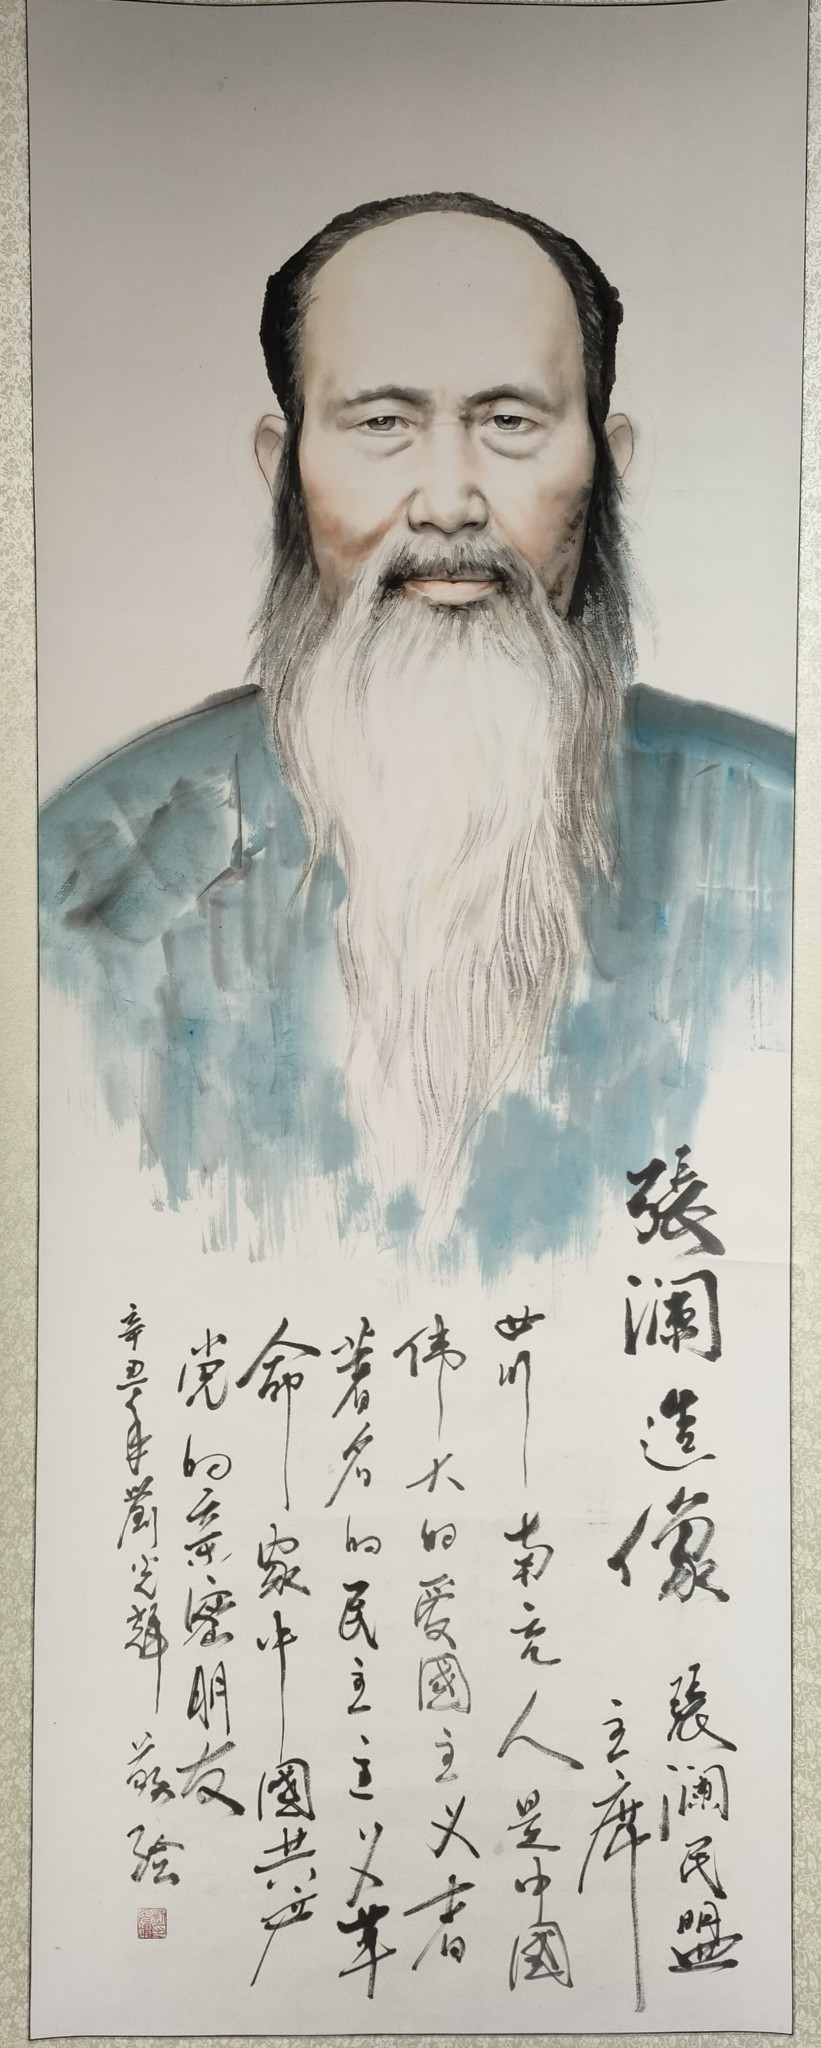 張瀾造像
張瀾民盟
主席
四川南充人是中國
伟大的爱國主义者
著名的民主主义革
命家中國共产
党的亲密朋友
辛丑年劉光輝敬绘